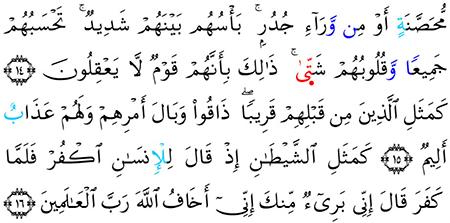 مُّحَصَّنَةٍ أَوْ مِن وَّرَآءِ جُدُرٍۭ ۚ بَأْسُهُم بَيْنَهُمْ شَدِيدٌ ۚ تَحْسَبُهُمْ
جَمِيعًا وَّقُلُوبُهُمْ شَتَّىٰ ۚ ذَٰلِكَ بِأَنَّهُمْ قَوْمٌ لَّا يَعْقِلُونَ ﴿١٤﴾
كَمَثَلِ ٱلَّذِينَ مِن قَبْلِهِمْ قَرِيبًا ۖ ذَاقُوا۟ وَبَالَ أَمْرِهِمْ وَلَهُمْ عَذَابٌ
أَلِيمٌ ﴿١٥﴾ كَمَثَلِ ٱلشَّيْطَـٰنِ إِذْ قَالَ لِلْإِنسَـٰنِ ٱكْفُرْ فَلَمَّا
كَفَرَ قَالَ إِنِّى بَرِىٓءٌ مِّنكَ إِنِّىٓ أَخَافُ ٱللَّهَ رَبَّ ٱلْعَـٰلَمِينَ ﴿١٦﴾